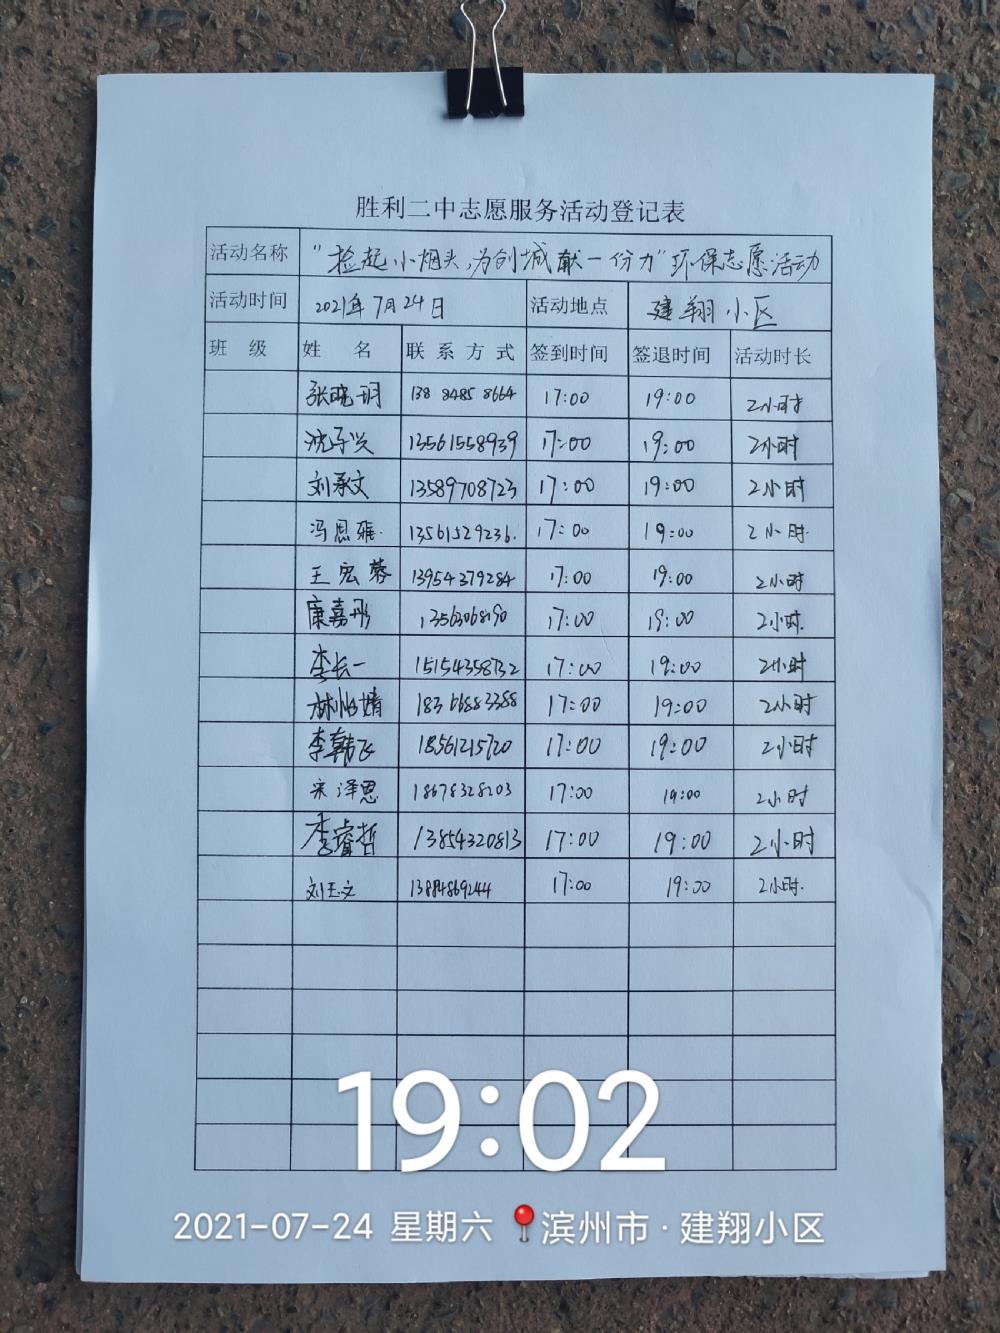 胜利二中志愿服务活动登记表
活动名称 "捡起小烟头,为创城献一份力"环保志愿活动
活动时间 2021年7月24日 活动地点 建翔小区
班 级 姓 名 联系方式 签到时间 签退时间 活动时长
张晓玥 138 8485 8664 17:00 19:00 2小时
沈子兴 13561558939 17:00 19:00 2小时
刘承文 13589708723 17:00 19:00 2小时
冯思雅 13561529236. 17:00 19:00 2小时.
王宏蓉 13954379284 17:00 19:00 2小时
康嘉彤 17:00 19:00 2小时.
李长一 15154358732 17:00 19:00 2小时
林怡婧 18366883388 17:00 19:00 2小时
李韩飞 18561215720 17:00 19:00 2小时
宋泽恩 18678328203 17:00 19:00 2小时
李睿哲 13854320813 17:00 19:00 2小时
刘玉文 13884869244 17:00 19:00 2小时.
19:02
2021-07-24 星期六 滨州市·建翔小区